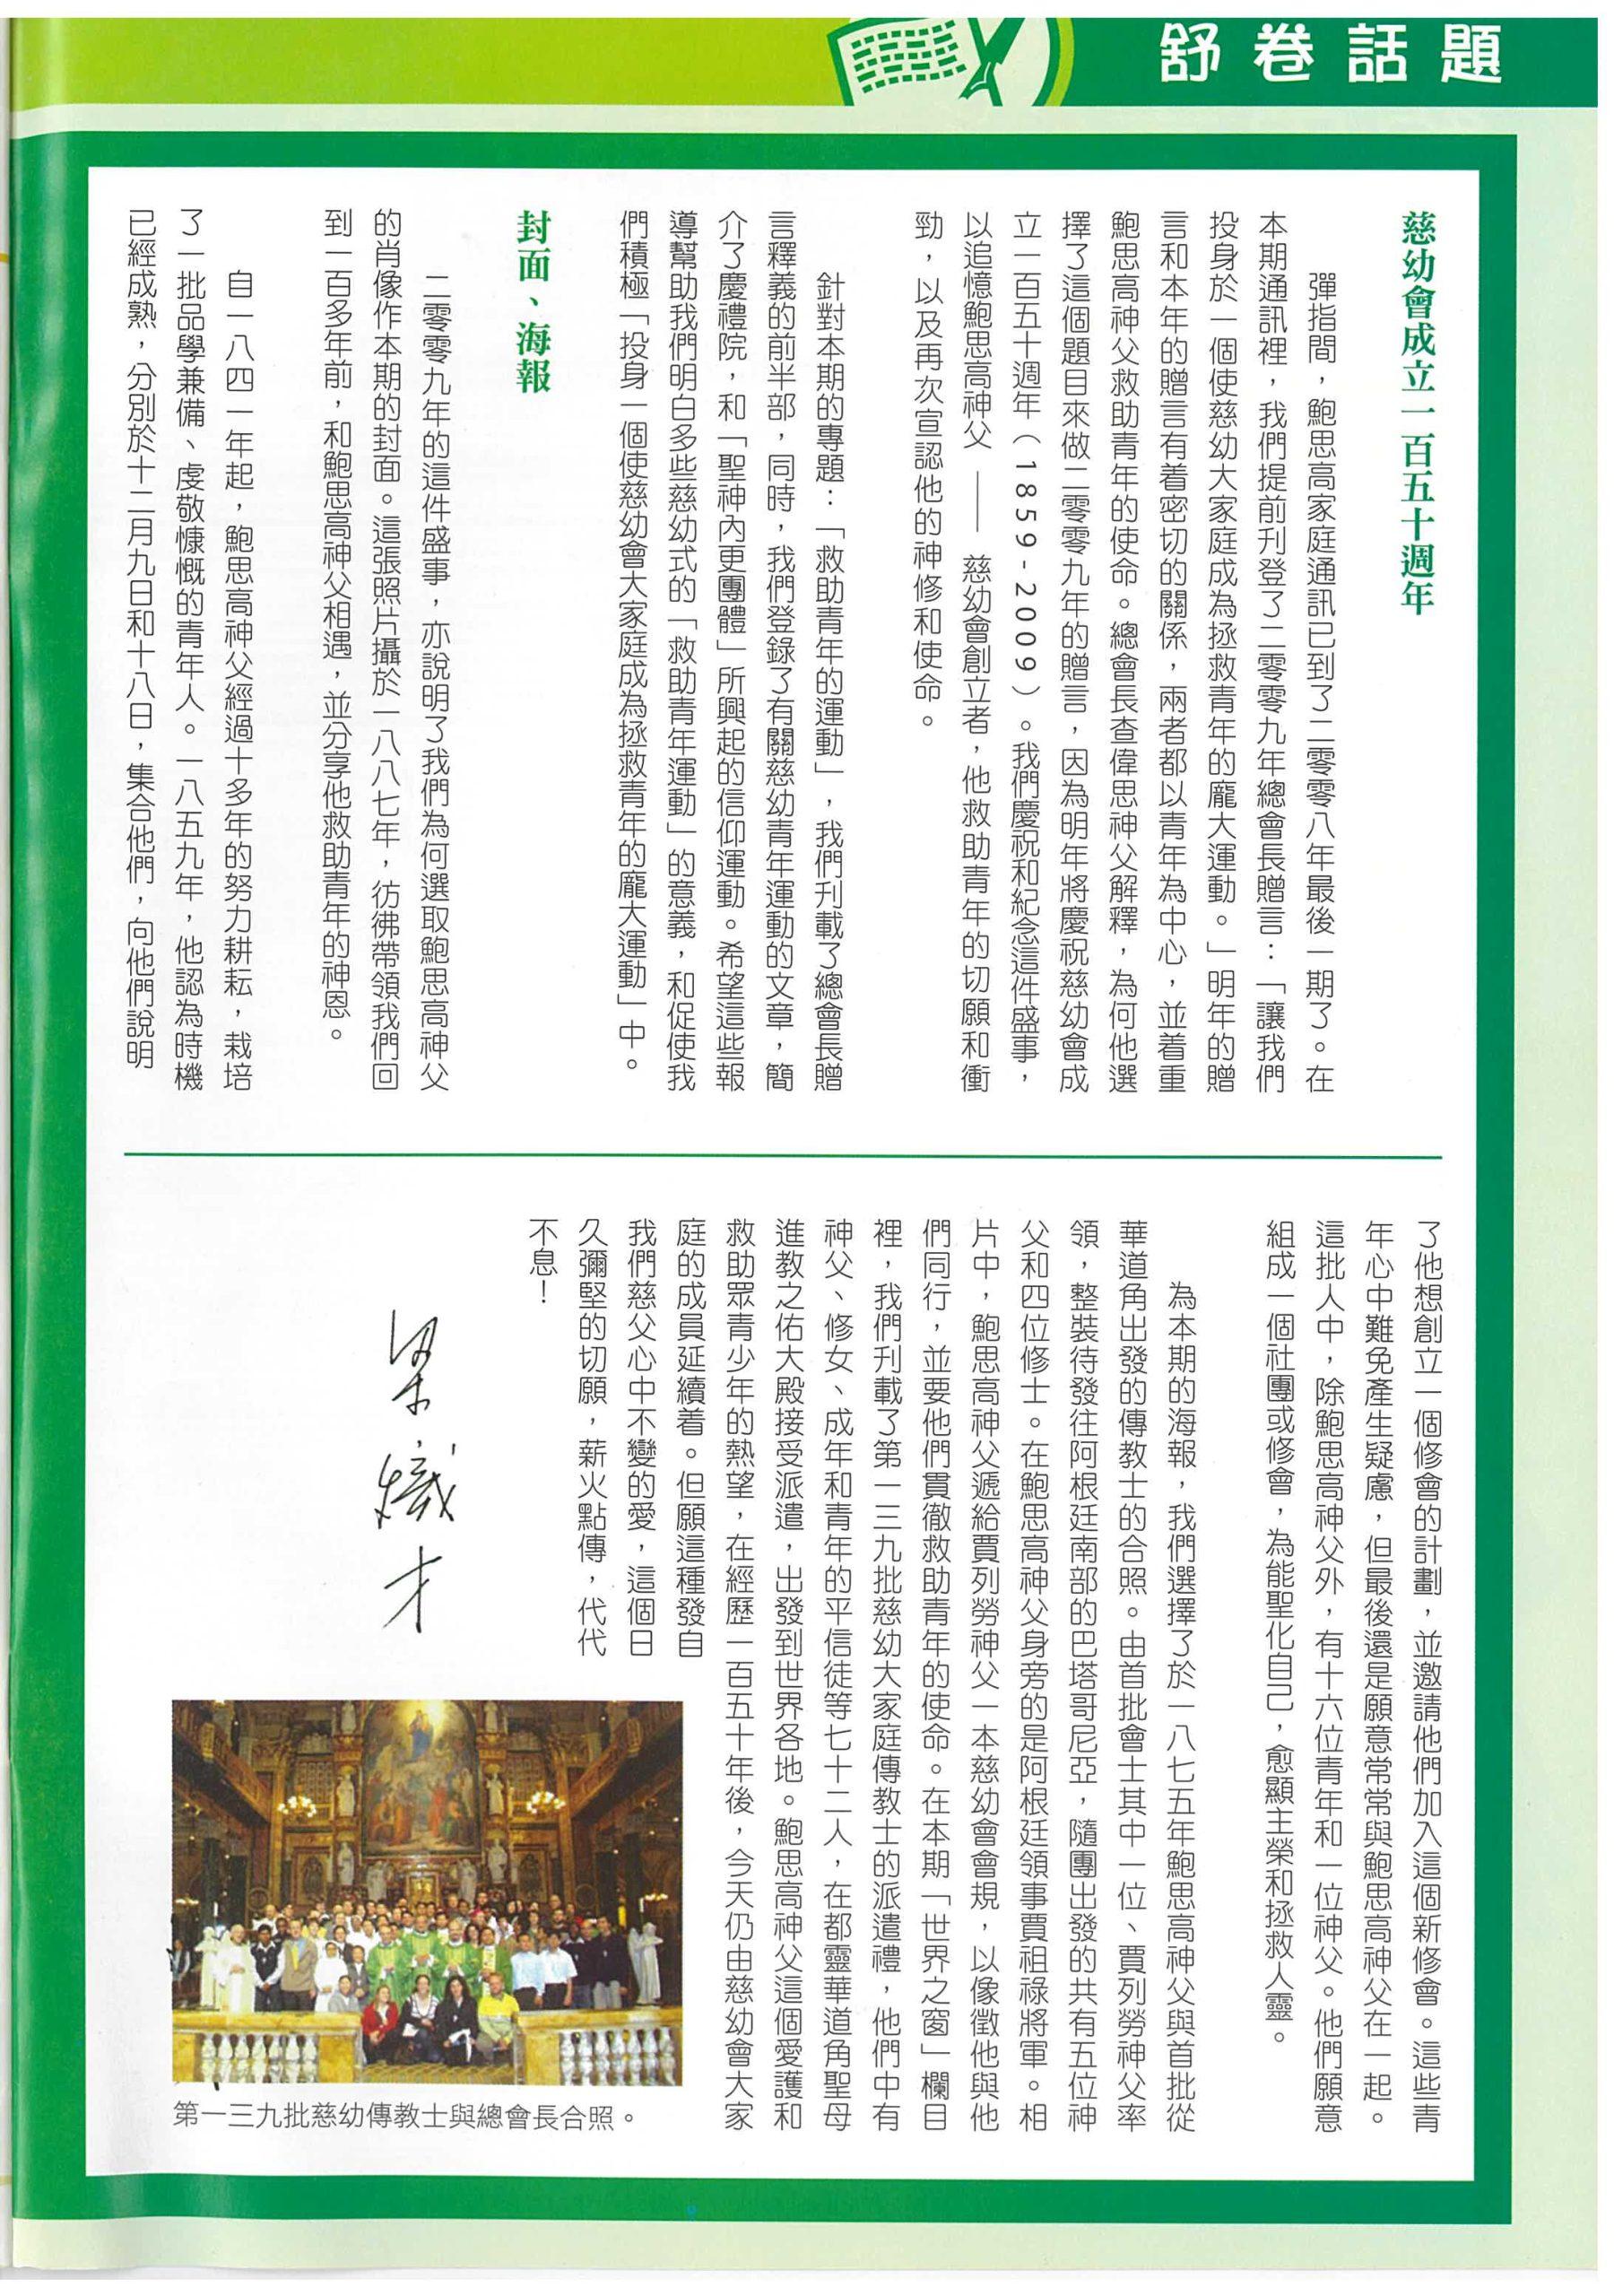 舒卷話題
慈幼會成立一百五十週年
彈指間，鮑思高家庭通訊已到了二零零八年最後一期了。在
本期通訊裡，我們提前刊登了二零零九年總會長贈言：「讓我們
投身於一個使慈幼大家庭成為拯救青年的龐大運動。」明年的贈
言和本年的贈言有着密切的關係，兩者都以青年為中心，並着重
鮑思高神父救助青年的使命。總會長查偉思神父解釋，為何他選
擇了這個題目來做二零零九年的贈言，因為明年將慶祝慈幼會成
立一百五十週年（1859-2009）。我們慶祝和紀念這件盛事，
以追憶鮑思高神父 —— 慈幼會創立者，他救助青年的切願和衝
勁，以及再次宣認他的神修和使命。
針對本期的專題：「救助青年的運動」，我們刊載了總會長贈
言釋義的前半部，同時，我們登錄了有關慈幼青年運動的文章，簡
介了慶禮院，和「聖神內更團體」所興起的信仰運動。希望這些報
導幫助我們明白多些慈幼式的「救助青年運動」的意義，和促使我
們積極「投身一個使慈幼會大家庭成為拯救青年的龐大運動」中。
封面、海報
二零零九年的這件盛事，亦說明了我們為何選取鮑思高神父
的肖像作本期的封面。這張照片攝於一八八七年，彷彿帶領我們回
到一百多年前，和鮑思高神父相遇，並分享他救助青年的神恩。
自一八四一年起，鮑思高神父經過十多年的努力耕耘，栽培
了一批品學兼備、虔敬慷慨的青年人。一八五九年，他認為時機
已經成熟，分別於十二月九日和十八日，集合他們，向他們說明
了他想創立一個修會的計劃，並邀請他們加入這個新修會。這些青
年心中難免產生疑慮，但最後還是願意常常與鮑思高神父在一起。
這批人中，除鮑思高神父外，有十六位青年和一位神父。他們願意
組成一個社團或修會，為能聖化自己，愈顯主榮和拯救人靈。
為本期的海報，我們選擇了於一八七五年鮑思高神父與首批從
華道角出發的傳教士的合照。由首批會士其中一位、賈列勞神父率
領，整裝待發往阿根廷南部的巴塔哥尼亞，隨團出發的共有五位神
父和四位修士。在鮑思高神父身旁的是阿根廷領事賈祖祿將軍。相
片中，鮑思高神父遞給賈列勞神父一本慈幼會會規，以像徵他與他
們同行，並要他們貫徹救助青年的使命。在本期「世界之窗」欄目
裡，我們刊載了第一三九批慈幼大家庭傳教士的派遣禮，他們中有
神父、修女、成年和青年的平信徒等七十二人，在都靈華道角聖母
進教之佑大殿接受派遣，出發到世界各地。鮑思高神父這個愛護和
救助眾青少年的熱望，在經歷一百五十年後，今天仍由慈幼會大家
庭的成員延續着。但願這種發自
我們慈父心中不變的愛，這個日
久彌堅的切願，薪火點傳，代代
不息！
梁熾才
第一三九批慈幼傳教士與總會長合照。